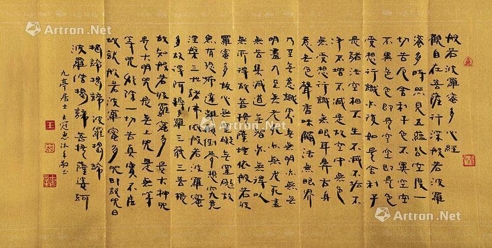 般若波羅蜜多心經
觀自在菩薩行深般若波羅
蜜多時照見五蘊皆空度一
切苦厄舍利子色不異空空
不異色色即是空空即是色
受想行識亦復如是舍利子
是諸法空相不生不滅不垢不
淨不增不減是故空中無色
無受想行識無眼耳鼻舌身
意無色聲香味觸法無眼界
乃至無意識界無無明亦無無
明盡乃至無老死亦無老死盡
無苦集滅道無智亦無得以
無所得故菩提薩埵依般若波
羅蜜多故心無罣礙無罣礙故
無有恐怖遠離顛倒夢想究竟
涅槃三世諸佛依般若波羅蜜
多故得阿耨多羅三藐三菩提
故知般若波羅蜜多是大神咒
是大明咒是無上咒是無等
等咒能除一切苦真實不虛
故說般若波羅蜜多咒即說咒曰
揭諦揭諦波羅揭諦
波羅僧揭諦菩提薩婆訶
九亭居士王冠
Artron.Net
Artron.Net
Artron.Net
Artron.Net